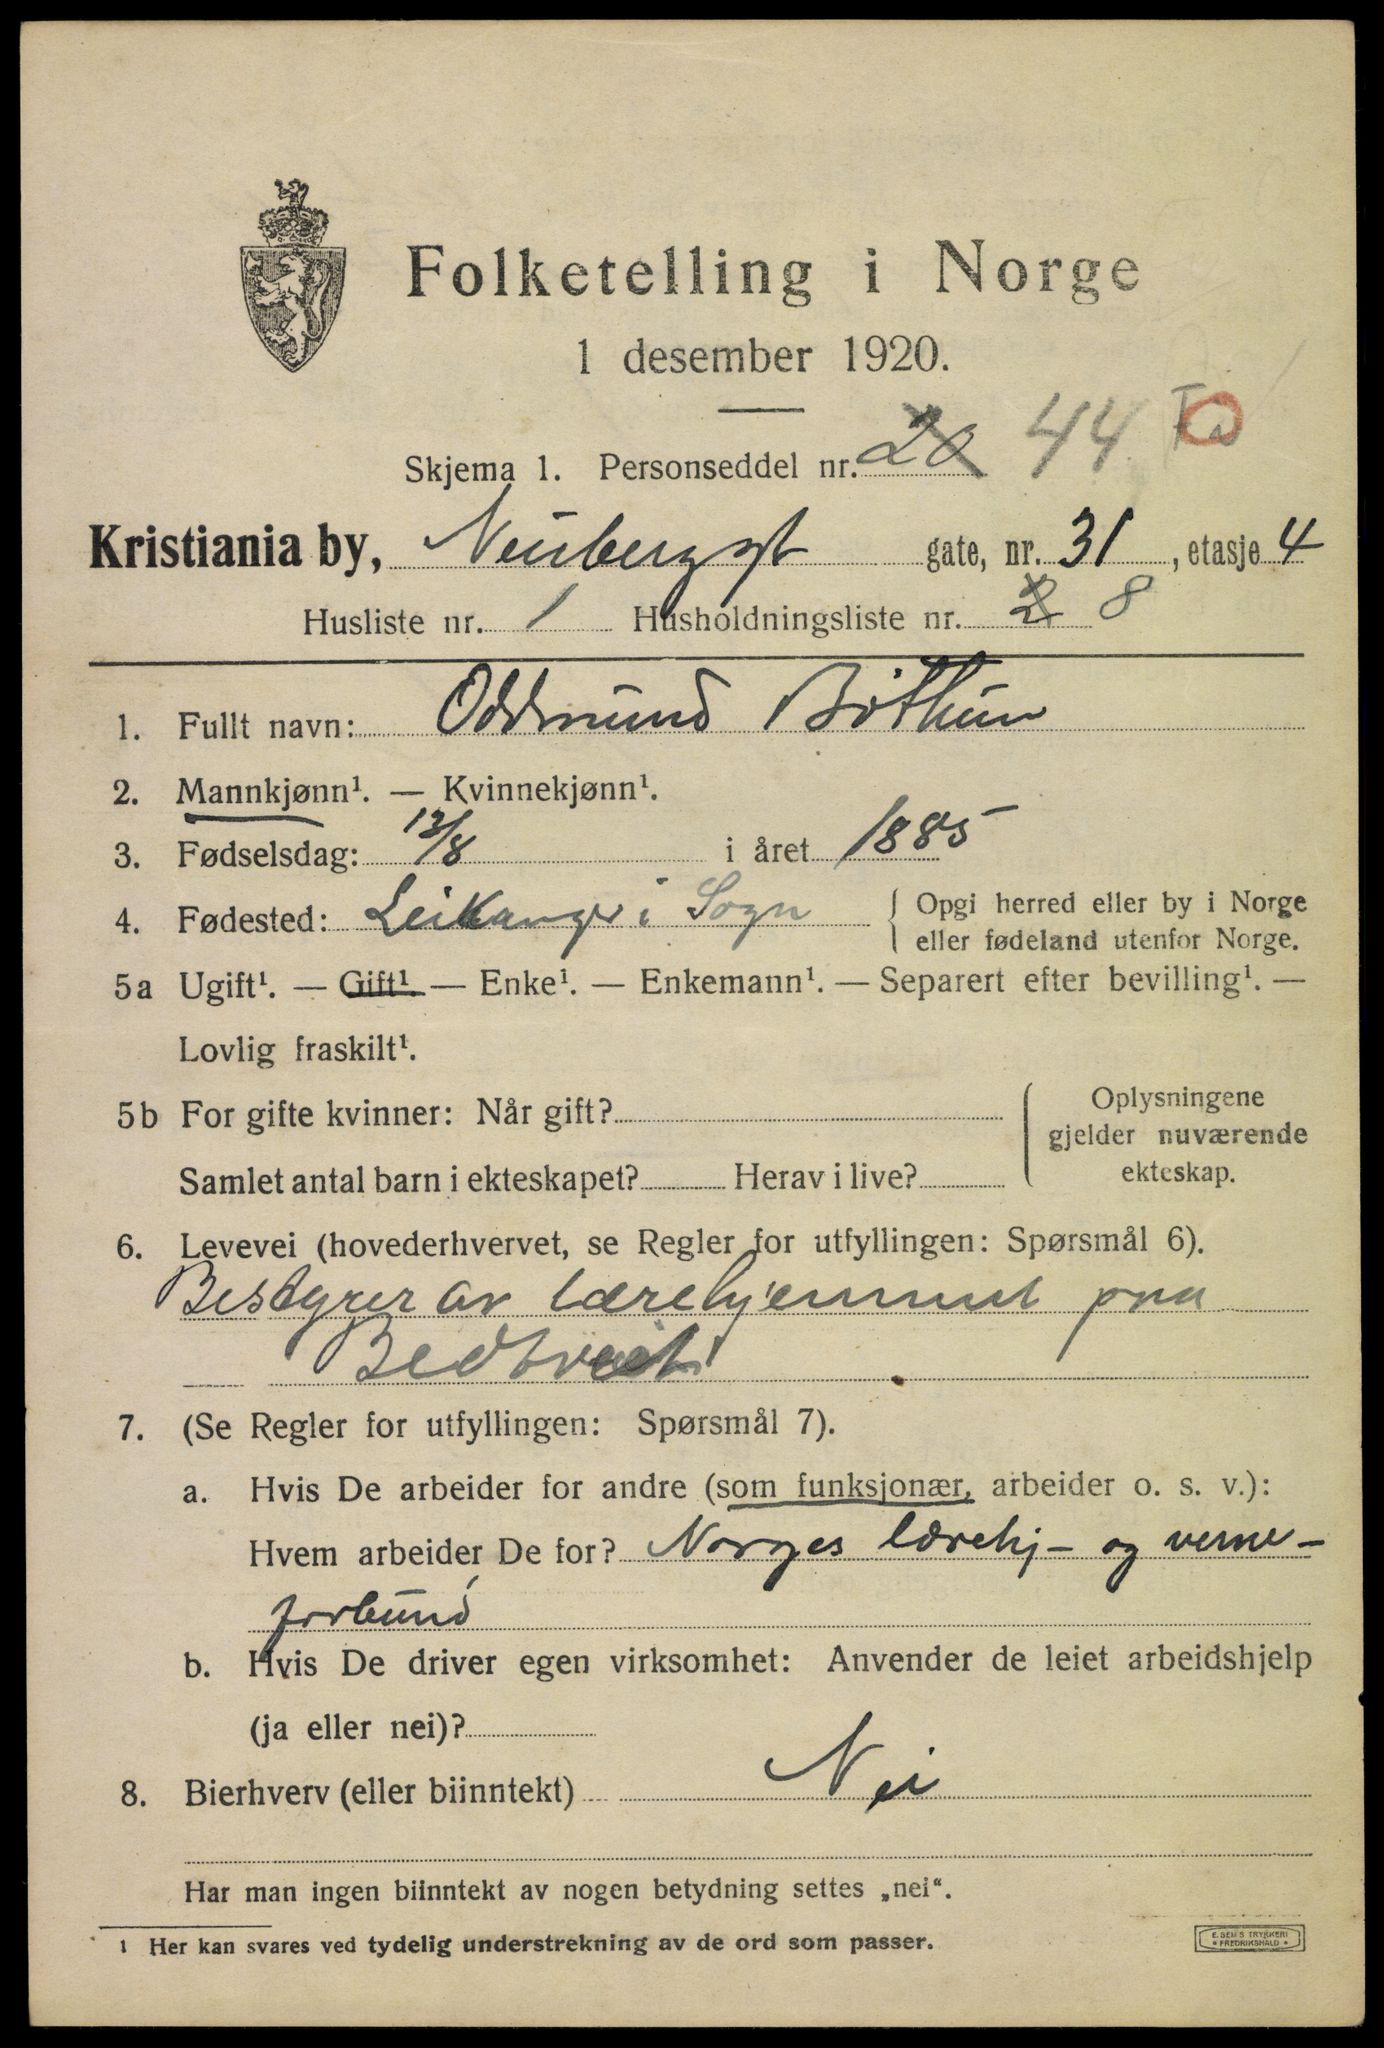 Folketelling i Norge
1 desember 1920.
Skjema 1. Personseddel nr. 20 44
Kristiania by, Neubergsgt gate, nr. 31, etasje 4
Husliste nr. 1 Husholdningsliste nr. 2 8
1. Fullt navn: Oddmund Bøthun
2. Mannkjønn¹. — Kvinnekjønn¹.
3. Fødselsdag: 12/8 i året 1885
4. Fødested: Leikanger i Sogn { Opgi herred eller by i Norge
eller fødeland utenfor Norge.
5a Ugift¹. — Gift¹. — Enke¹. — Enkemann¹. — Separert efter bevilling¹. —
Lovlig fraskilt¹.
5b For gifte kvinner: Når gift? { Oplysningene
gjelder nuværende
Samlet antal barn i ekteskapet? Herav i live? ekteskap.
6. Levevei (hovederhvervet, se Regler for utfyllingen: Spørsmål 6).
Bestyrer av lærehjemmet paa
Bedtveit
7. (Se Regler for utfyllingen: Spørsmål 7).
a. Hvis De arbeider for andre (som funksjonær, arbeider o. s. v.):
Hvem arbeider De for? Norges lærehj- og verne-
forbund
b. Hvis De driver egen virksomhet: Anvender de leiet arbeidshjelp
(ja eller nei)?
8. Bierhverv (eller biinntekt) Nei
Har man ingen biinntekt av nogen betydning settes „nei“.
1 Her kan svares ved tydelig understrekning av de ord som passer.
E. SEM'S TRYKKERI
• FREDRIKSHALD •